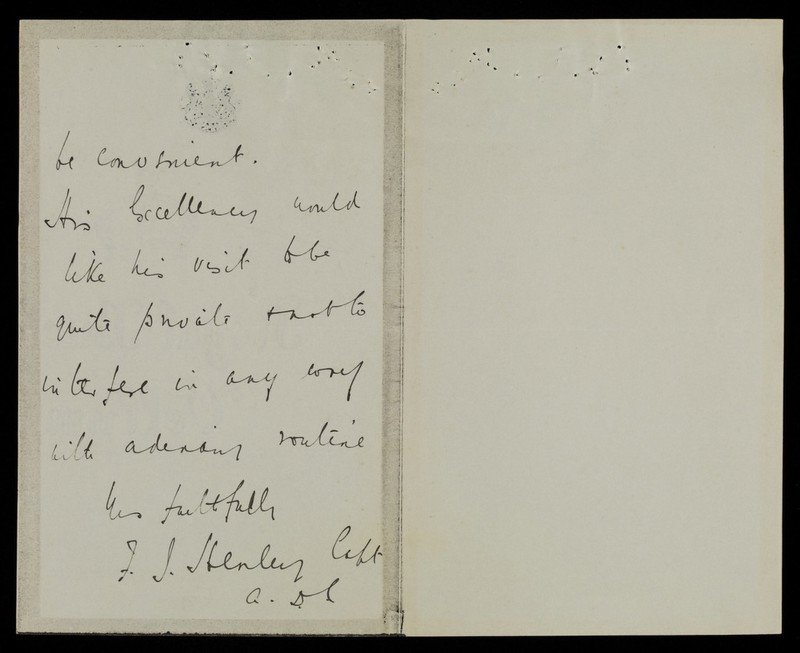 be convenient.
His Excellency would
like his visit to be
quite private & not to
interfere in any way
with routine
Yrs faithfully
F. J. Henley Capt
A. D. C